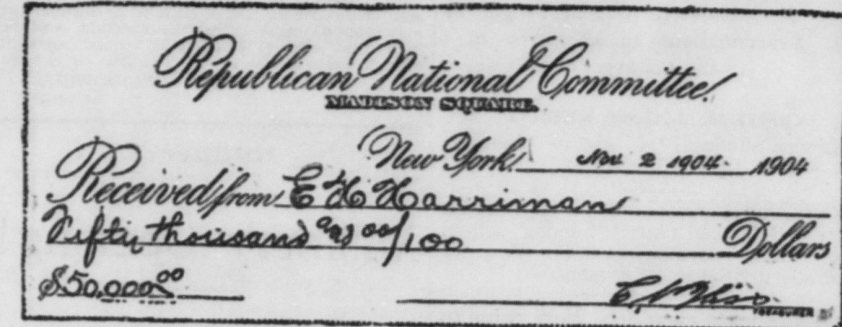 Republican National Committee.
MADISON SQUARE.
New York. Nov 2 1904 1904
Received from E H Harriman
Fifty thousand and 00/100 Dollars
$50,000.00
C N Bliss
TREASURER